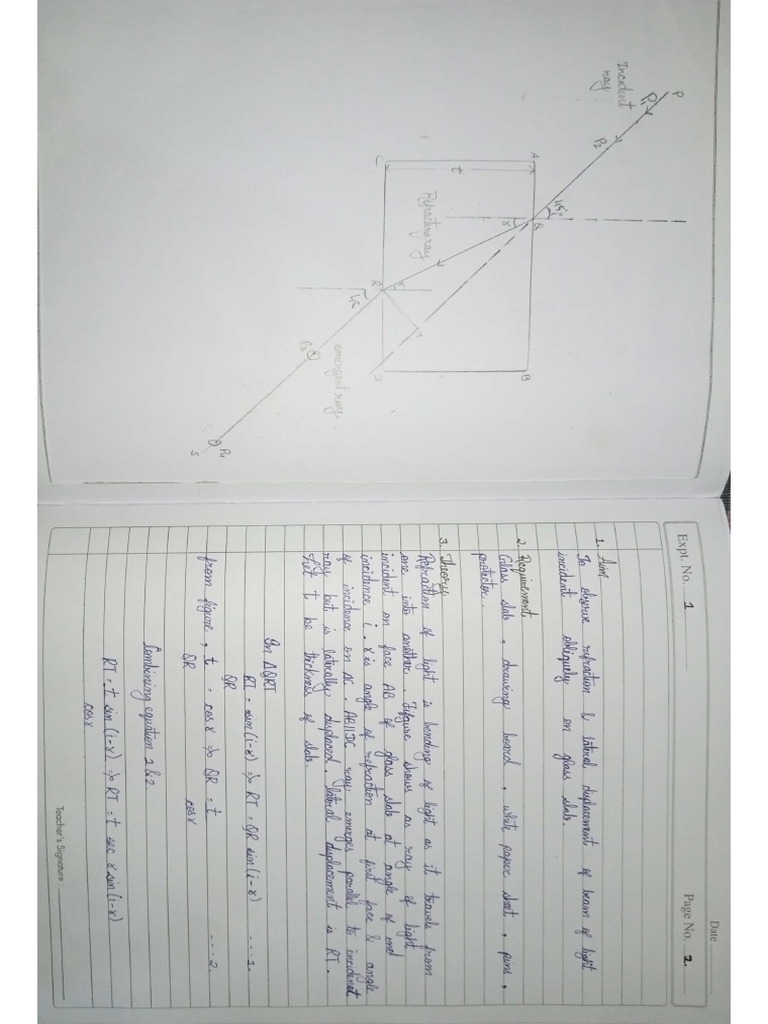 P
P1
Incident
ray
P2
45°
A
Q
B
t
r
Refracting ray
C
R
r
T
D
45
P3
emergent ray.
P4
S
Date
Expt. No. 1
Page No. 2.
1. Aim
To observe refraction & lateral displacement of beam of light
incident obliquely on glass slab.
2. Requirement
Glass slab, drawing board, white paper sheet, pins,
protector.
3. Theory
Refraction of light is bending of light as it travels from
one into another. Figure shows as ray of light
incident on face AB of glass slab at angle of
incidence i. r is angle of refraction at first face & angle
of incidence on DC. AB||DC ray emerges parallel to incident
ray but is laterally displaced. lateral displacement is RT.
Let t be thickness of slab.
In ΔQRT
RT = sin (i-r) => RT = QR sin (i-r) ---1.
QR
from figure, t = cos r => QR = t ---2.
QR cos r
Combining equation 1 & 2
RT = t sin (i-r) => RT = t sec r sin (i-r)
cos r
Teacher's Signature